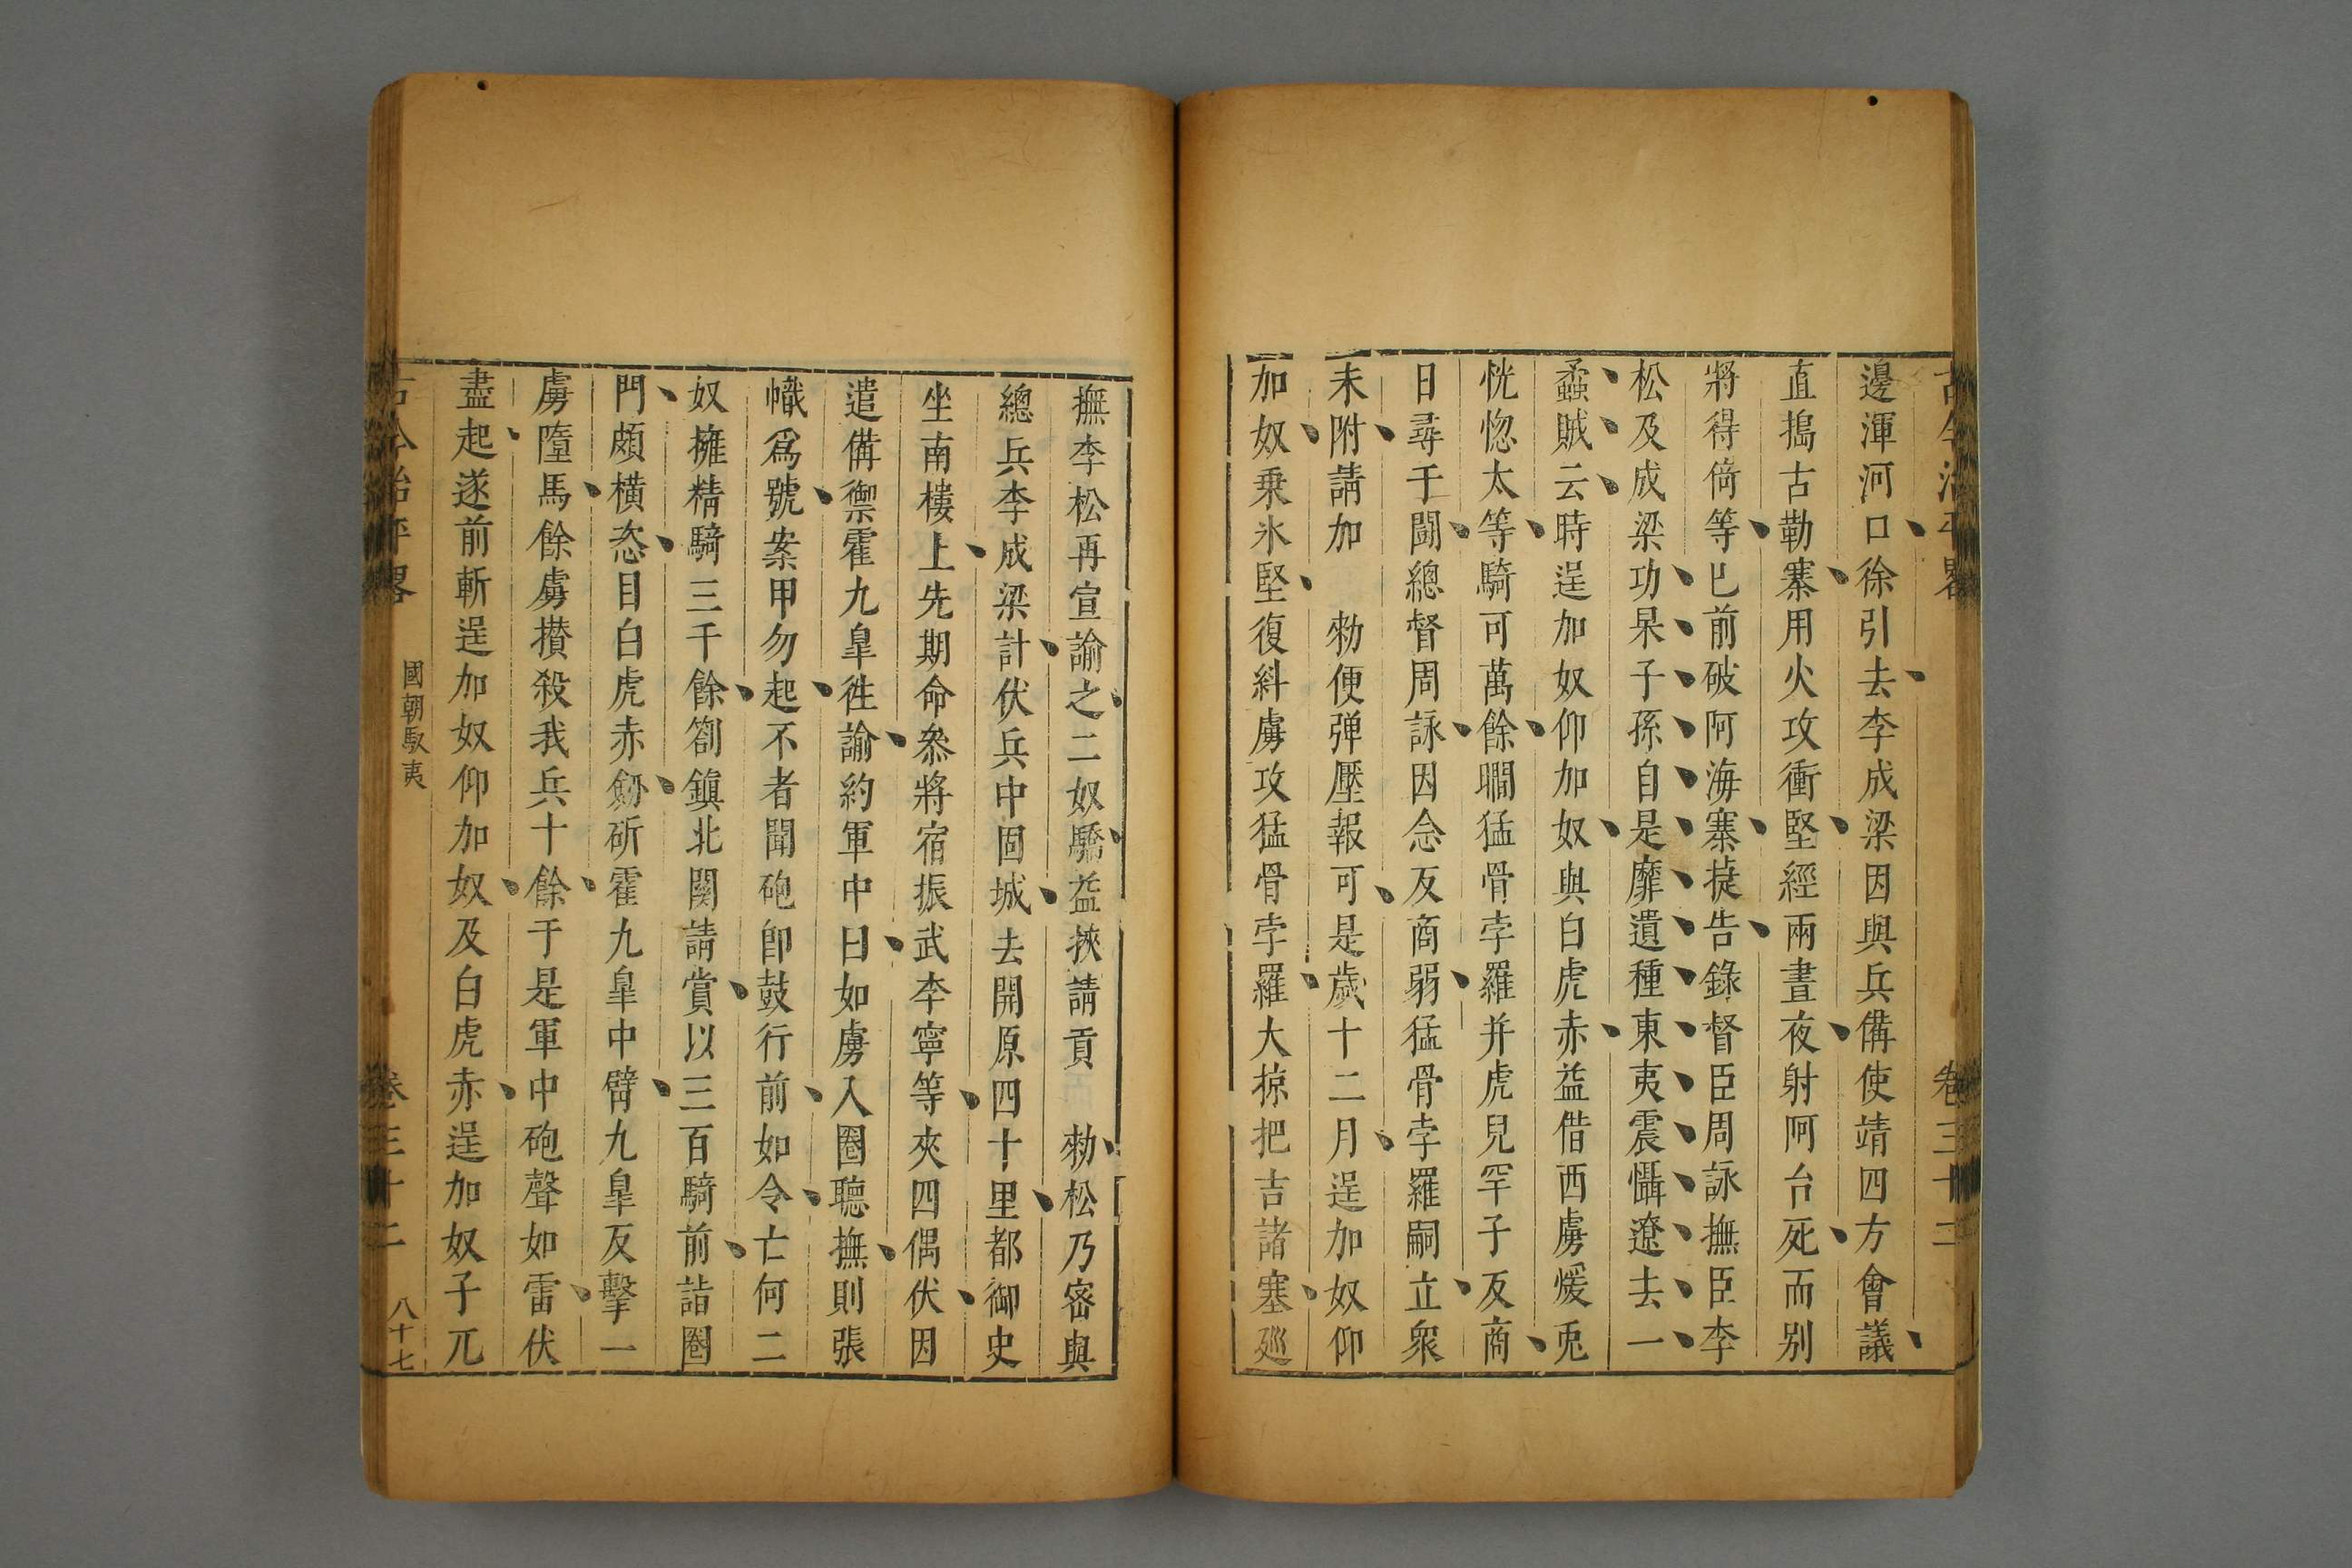 邊渾河口徐引去李成梁因與兵備使靖四方會議
直搗古勒寨用火攻衝堅經兩晝夜射阿台死而别
將得倚等已前破阿海寨㨗告錄督臣周詠撫臣李
松及成梁功杲子孫自是靡遺種東夷震懾遼去一
蟊賊云時逞加奴仰加奴與白虎赤益借西虜煖兎
恍惚太等騎可萬餘瞷猛骨孛羅并虎兒罕子反商
日尋于鬭總督周詠因念反商弱猛骨孛羅嗣立衆
未附請加勑便弹壓報可是歲十二月逞加奴仰
加奴乗氷堅復糾虜攻猛骨孛羅大掠把吉諸塞廵
古今治平畧 卷三十二
撫李松再宣諭之二奴驕益挾請貢勑松乃宻與
總兵李成梁計伏兵中固城去開原四十里都御史
坐南樓上先期命叅將宿振武李寧等夾四偶伏因
遣備禦霍九臯徃諭約軍中曰如虜入圈聽撫則張
幟爲號案甲勿起不者聞砲卽鼓行前如令亡何二
奴擁精騎三千餘劄鎮北関請賞以三百騎前詣圈
門頗橫恣目白虎赤劒斫霍九臯中臂九臯反擊一
虜墮馬餘虜攅殺我兵十餘于是軍中砲聲如雷伏
盡起遂前斬逞加奴仰加奴及白虎赤逞加奴子兀
古今治平畧 國朝馭夷 卷三十二 八十七